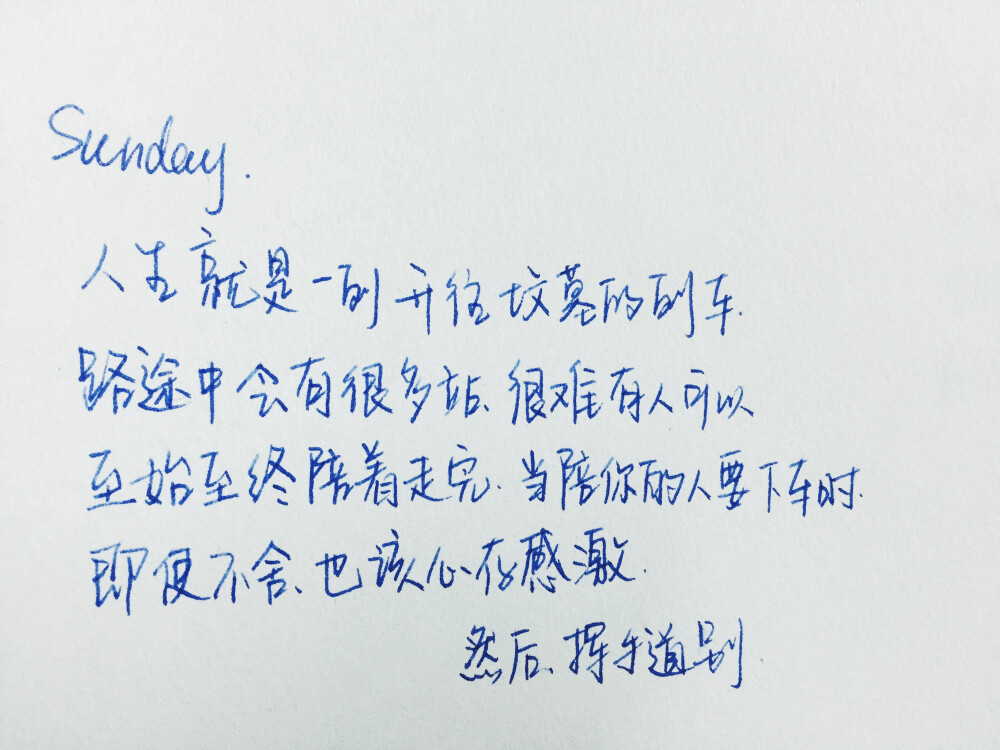 Sunday.
人生就是一列开往坟墓的列车.
路途中会有很多站、很难有人可以
至始至终陪着走完.当陪你的人要下车时.
即便不舍、也该心存感激.
然后、挥手道别